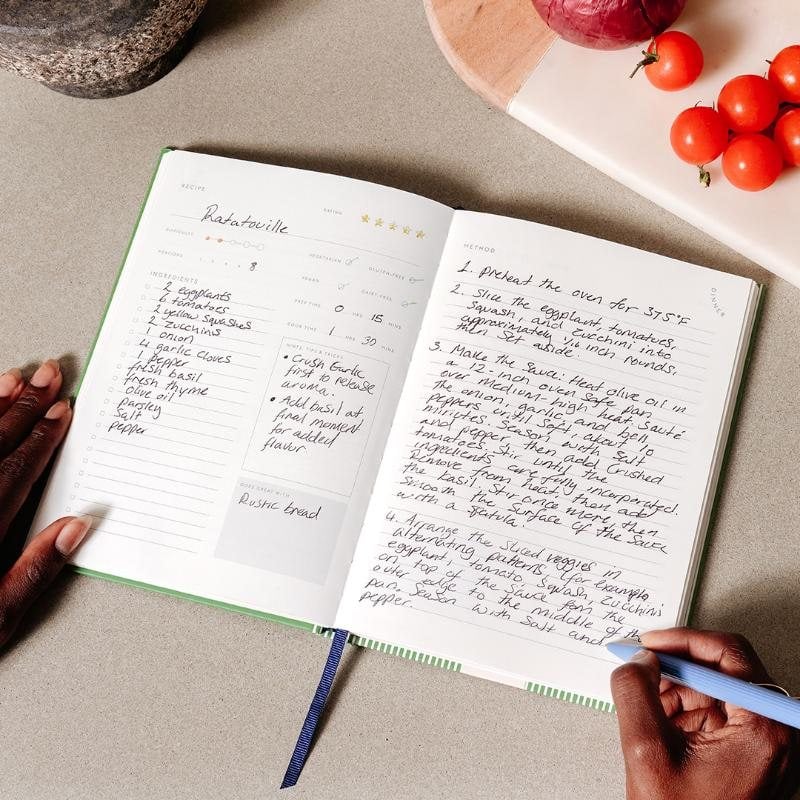 RECIPE
Ratatouille
RATING
DIFFICULTY
VEGETARIAN
GLUTEN-FREE
PORTIONS
8
VEGAN
DAIRY-FREE
PREP TIME 0 HRS 15 MINS
COOK TIME 1 HRS 30 MINS
INGREDIENTS
2 eggplants
6 tomatoes
2 yellow squashes
2 zucchinis
1 onion
4 garlic cloves
1 pepper
fresh basil
fresh thyme
olive oil
parsley
salt
pepper
NOTES, TIPS & TRICKS
• Crush Garlic
first to release
aroma.
• Add basil at
final moment
for added
flavor
GOES GREAT WITH
Rustic bread
METHOD
DINNER
1. Preheat the oven for 375°F
2. Slice the eggplant, tomatoes,
squash, and zucchini into
approximately 1/16 inch rounds,
then set aside.
3. Make the sauce: Heat olive oil in
a 12-inch oven safe pan
over medium-high heat. Sauté
the onion, garlic and bell
peppers until soft, about 10
minutes. Season with salt
and pepper, then add crushed
tomatoes. Stir until the
ingredients are fully incorporated.
Remove from heat, then add
the basil. Stir once more, then
smooth the surface of the sauce
with a spatula.
4. Arrange the sliced veggies in
alternating patterns, (for example
eggplant, tomato, squash, zucchini)
on top of the sauce from the
outer edge to the middle of the
pan. Season with salt and
pepper.